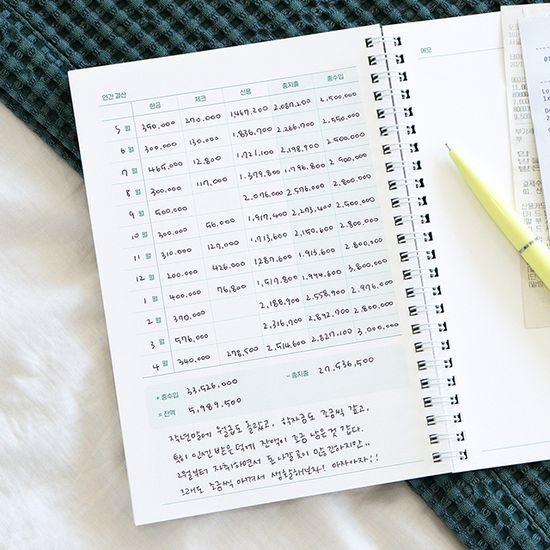 연간 결산 현금 체크 신용 총지출 총수입
5월 350,000 270,000 1,467,200 2,087,200 2,500,000
6월 300,000 130,000 1,836,700 2,266,700 2,550,000
7월 465,000 12,800 1,721,100 2,198,900 2,500,000
8월 300,000 117,000 1,379,800 1,796,800 2,500,000
9월 500,000 2,076,000 2,576,000 2,800,000
10월 300,000 56,000 1,917,400 2,273,400 2,500,000
11월 310,000 127,000 1,713,600 2,150,600 2,800,000
12월 200,000 426,000 1,287,600 1,913,600 2,800,000
1월 400,000 76,800 1,517,800 1,994,600 3,800,000
2월 370,000 2,188,900 2,558,900 2,976,000
3월 576,000 2,316,700 2,892,700 2,800,000
4월 340,000 278,500 2,514,600 2,827,100 3,000,000
+ 총수입 33,526,000 - 총지출 27,536,500
= 잔액 5,989,500
작년보다 월급도 올랐고, 학자금도 조금씩 갚고,
특히 인센 받은 덕에 잔액이 조금 남은 것 같다.
2월부터 자취하면서 돈 나갈 곳이 많긴하지만..
그래도 조금씩 아껴서 생활해보자! 아자아자!!
메모